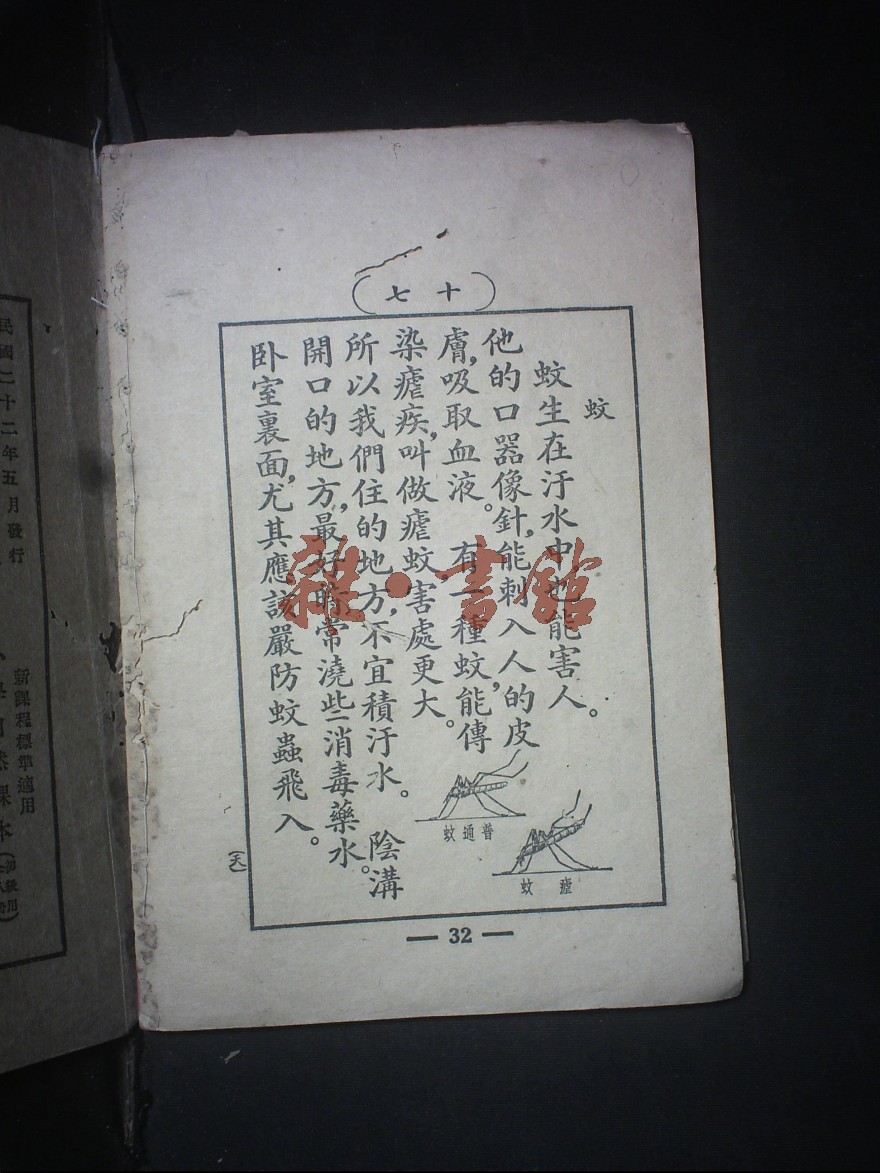 十七
蚊
蚊生在汙水中也能害人。
他的口器像針，能刺入人的皮
膚，吸取血液。有一種蚊，能傳
染瘧疾，叫做瘧蚊害處更大。
所以我們住的地方，不宜積汙水。陰溝
開口的地方，最好時常澆些消毒藥水。
卧室裏面，尤其應該嚴防蚊蟲飛入。
普通蚊
瘧蚊
32
雜·書館
新課程標準適用
民國二十二年五月發行